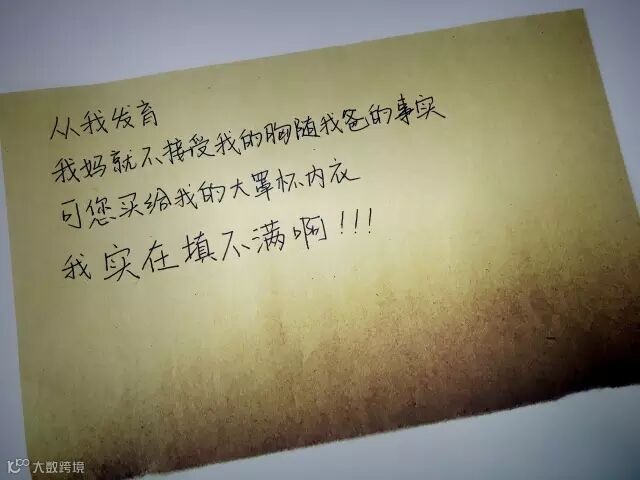 从我发育
我妈就不接受我的胸随我爸的事实
可您买给我的大罩杯内衣
我实在填不满啊!!!
大数跨境